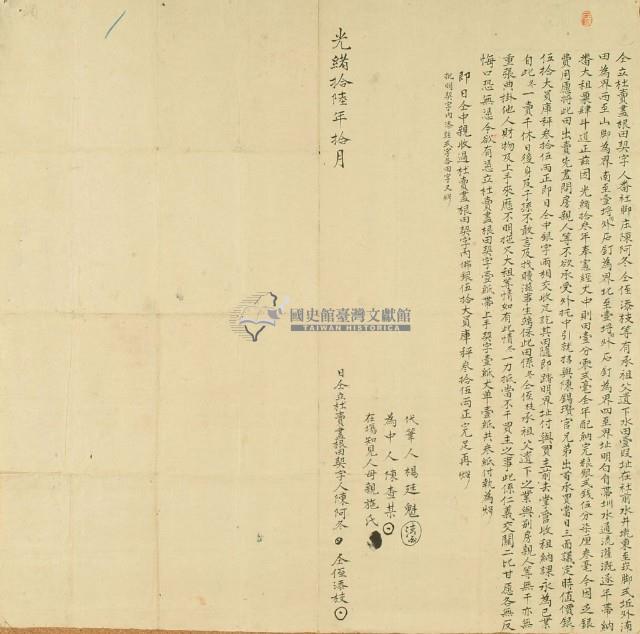 仝立杜賣盡根田契字人番社腳庄陳阿冬仝侄添枝等有承祖父遺下水田壹段址在社前水井墘東至崁腳弌坵外溝
田為界西至山腳為界南至壹坵外石釘為界北至壹坵外石釘為界四至界址明白年帶圳水通流灌溉逐年帶納
番大租粟肆斗道正茲因光緒拾叁年奉憲經丈中則田壹分零弍毫全年配納完粮銀弍錢伍分柒厘叁毫今因乏銀
費用愿將此田出賣先盡問房親人等不欲承受外托中引就招與陳錫瓚官兄弟出首承買當日三面議定時值價銀
伍拾大員庫秤叁拾伍両正即日仝中銀字兩相交收足訖其田隨即踏明界址付與買主前去掌管收租納課永為己業
自此冬一賣千休日後身及子孫不敢言及找贖滋事生端保此田係冬仝侄枝承祖父遺下之業與別房親人等無干亦無
重張典掛他人財物及上手來歷不明拖欠大租等情如有此情冬一力抵當不干買主之事此係仁義交關二比甘愿各無反
悔口恐無憑今欲有憑仝立杜賣盡根田契字壹紙帶上手契字壹紙丈單壹紙共叁紙付執為炤
即日仝中親收過杜賣盡根田契字內佛銀伍拾大員庫秤叁拾伍両正完足再炤
批明契字內添註弍字各田字又炤
代筆人楊廷魁
為中人陳查某
在場知見人母親施氏
日仝立杜賣盡根田契字人陳阿冬 仝侄添枝
光緒拾陸年拾月
國史館臺灣文獻館
TAIWAN HISTORICA